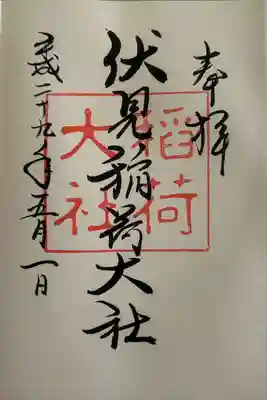 奉拝
伏見稲荷大社
稲荷
大社
平成二十九年五月一日